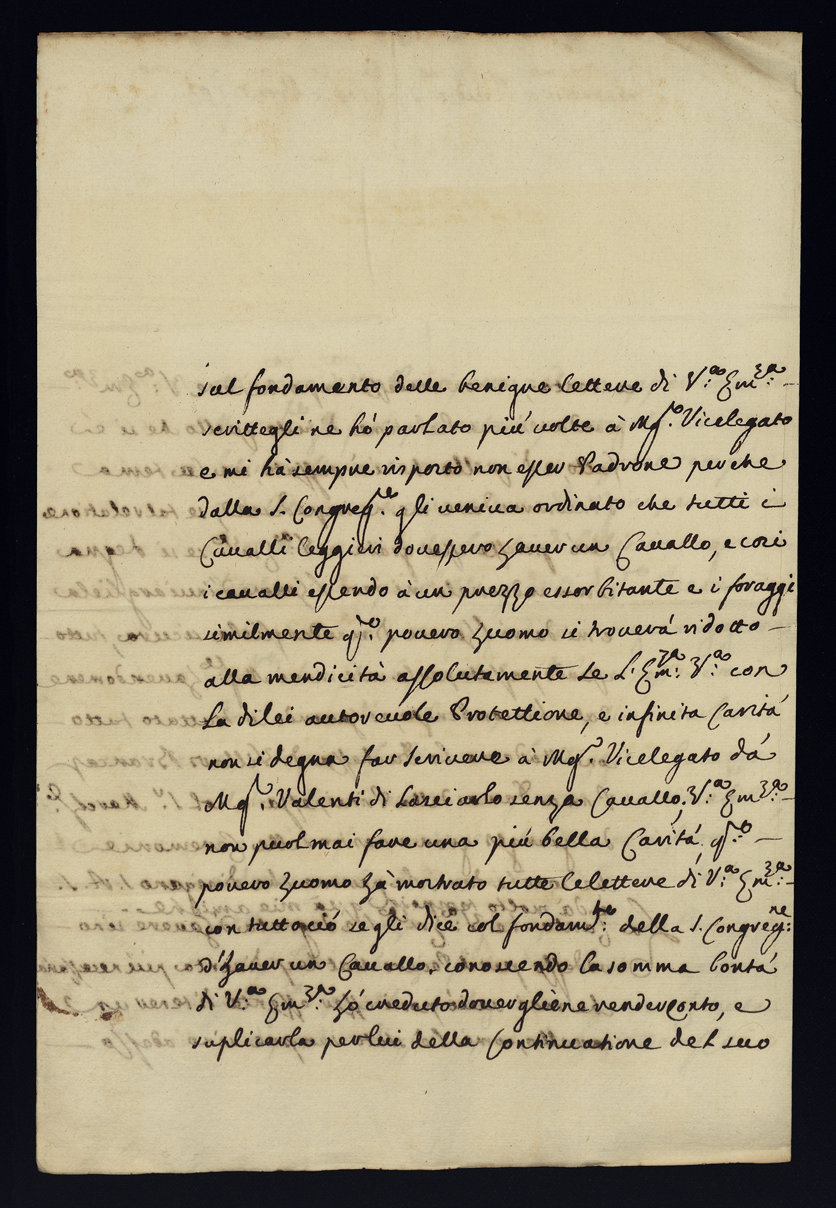 sul fondamento delle benigne lettere di V.ª Em.ᶻᵃ
scrittegli ne hò parlato più uolte à Mg.ʳ Vicelegato
e mi hà sempre risposto non esser Padrone perche
dalla S. Congreg.ⁿᵉ gli ueniua ordinato che tutti i
Caualli leggieri douessero hauer un Cauallo, e così
i caualli essendo à un prezzo essorbitante e i foraggi
similmente q.ᵗᵒ pouero huomo si trouerà ridotto
alla mendicità assolutamente se L'Em.ᶻᵃ V.ª con
La di lei autoreuole Protettione, e infinita Carità
non si degna far scriuere à Mg.ʳ Vicelegato dà
Mg.ʳ Valenti di Lasciarlo senza Cauallo; V.ª Em.ᶻᵃ
non puol mai fare una più bella Carità. q.ᵗᵒ
pouero huomo hà mostrato tutte le lettere di V.ª Em.ᶻᵃ
con tutto ciò se gli dice col fondam.ᵗᵒ della S. Congreg.ⁿᵉ
d'hauer un Cauallo, conoscendo la somma bontà
di V.ª Em.ᶻᵃ hò creduto douergliene render conto, e
suplicarla per lui della Continuatione del suo